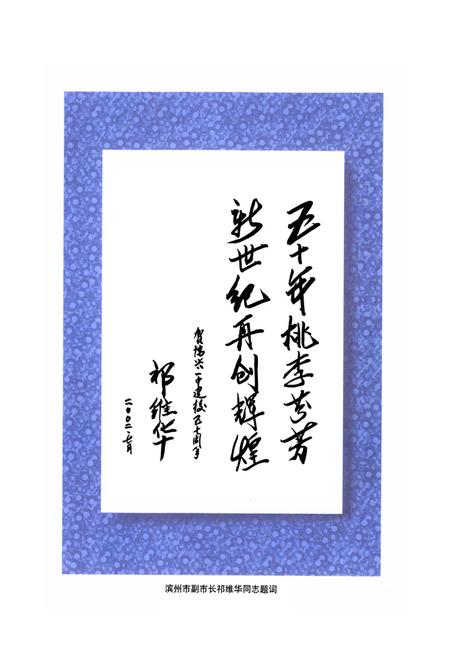 五十年桃李芬芳
新世纪再创辉煌
贺博兴一中建校五十周年
祁维华
二〇〇二.六月
滨州市副市长祁维华同志题词